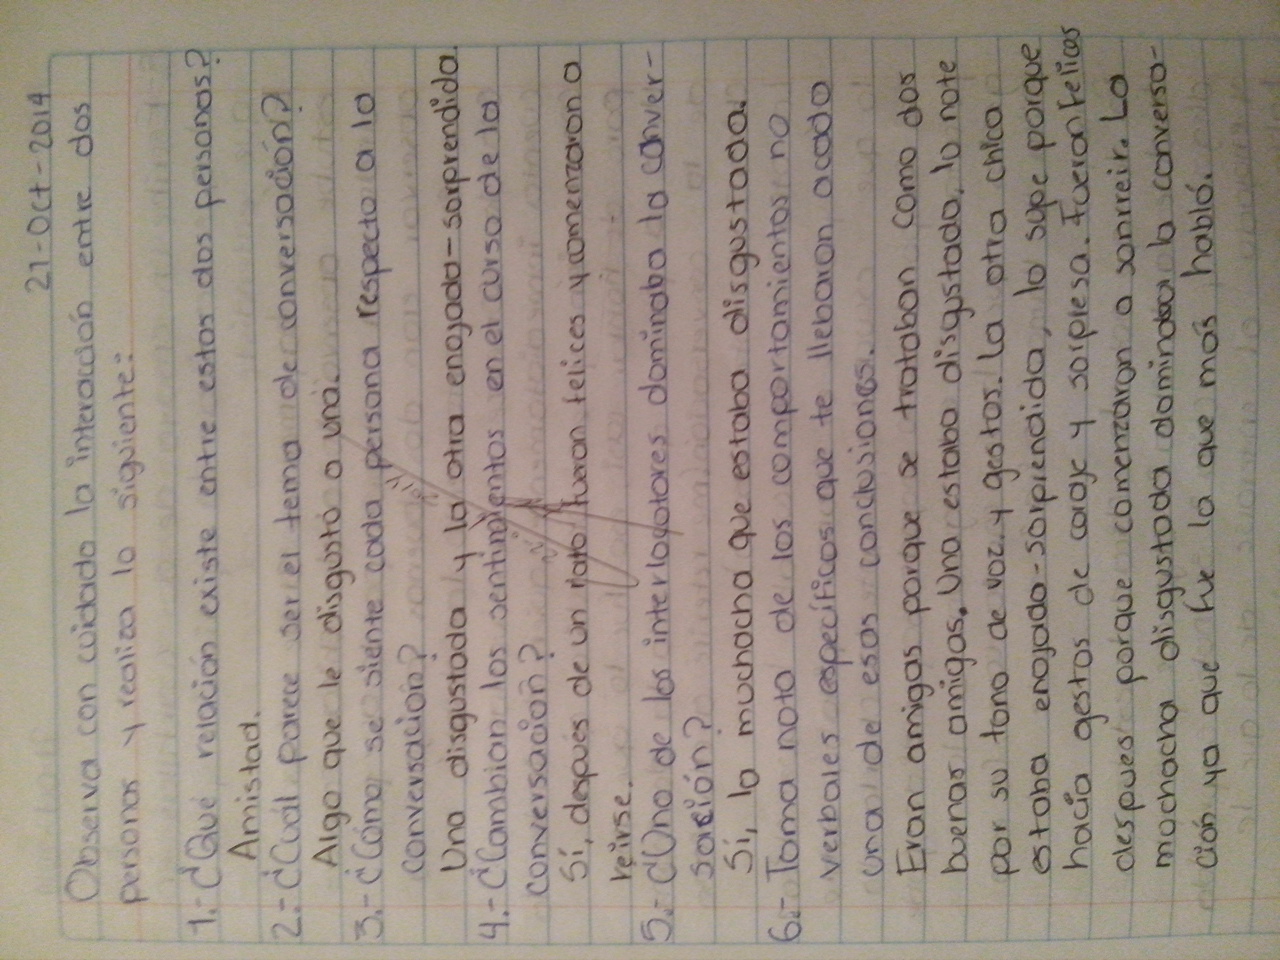 21-Oct-2014
Observa con cuidado la interacción entre dos
personas y realiza lo siguiente:
1.- ¿Qué relación existe entre estas dos personas?
Amistad.
2.- ¿Cuál parece ser el tema de conversación?
Algo que le disgustó a una.
3.- ¿Cómo se siente cada persona respecto a la
conversación?
Una disgustada y la otra enojada-sorprendida.
4.- ¿Cambian los sentimientos en el curso de la
conversación?
Sí, después de un rato fueron felices y comenzaron a
reirse.
5.- ¿Uno de los interlocutores dominaba la conver-
sación?
Sí, la muchacha que estaba disgustada.
6.- Toma nota de los comportamientos no
verbales específicos que te llebaron acada
una de esas conclusiones.
Eran amigas porque se trataban como dos
buenas amigas. Una estaba disgustada, lo note
por su tono de voz y gestos. La otra chica
estaba enojada-sorprendida, lo supe porque
hacía gestos de coraje y sorpresa. Fueron Felices
despues porque comenzaron a sonrreir. La
muchacha disgustada dominaba la conversa-
ción ya que fue la que más habló.